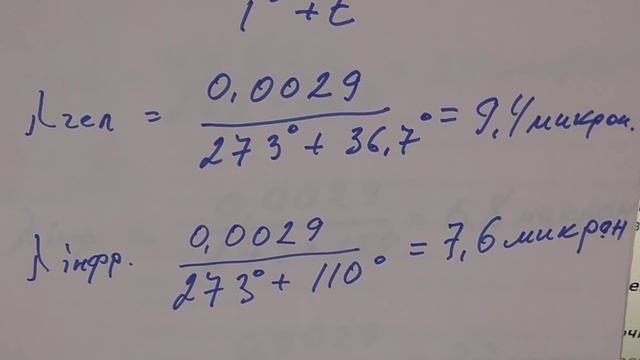 T° + t
λчел = 0,0029 / 273° + 36,7° = 9,4 микрон.
λінфр. 0,0029 / 273° + 110° = 7,6 микрон